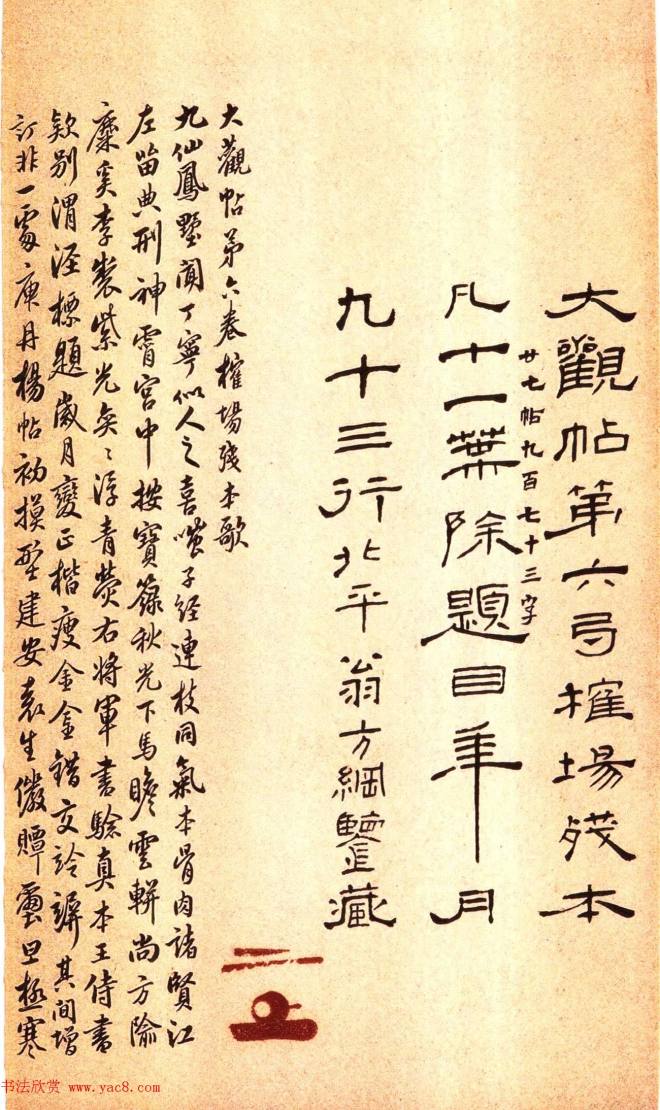 大觀帖第六弓榷場殘本
廿七帖九百七十三字
凡十一葉除題目年月
九十三行北平翁方綱鑒藏
大觀帖第六卷榷場殘本歌
九仙鳳墅聞丁寧似人之喜嗤子經連枝同氣本骨肉諸賢江
左留典刑神霄宮中按寶籙秋光下馬瞻雲軿尚方隃
麋奚李製紫光奕〻浮青熒右將軍書驗真本王侍書
款別渭涇標題歲月變正楷瘦金金錯交訡其間增
訂非一處庚丹楊帖初摸型建安袁生儆贉
書法欣赏 www.yac8.com